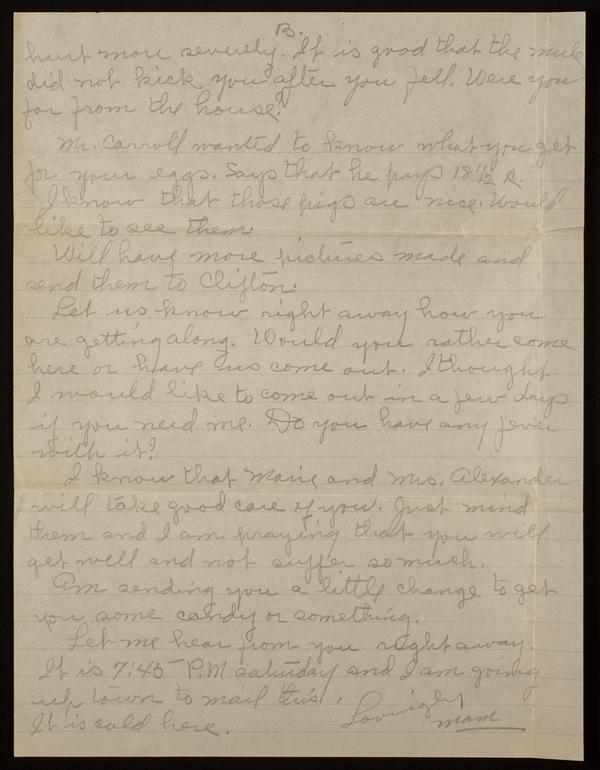 B.
hurt more severely. It is good that the mule
did not kick you after you fell. Were you
far from the house?
Mr. Carroll wanted to know what you get
for your eggs. Says that he pays 18 1/2 ¢.
I know that those pigs are nice. Would
like to see them.
Will have more pictures made and
send them to Clifton.
Let us know right away how you
are getting along. Would you rather come
here or have us come out. I thought
I would like to come out in a few days
if you need me. Do you have any fever
with it?
I know that Marie and Mrs. Alexander
will take good care of you. Just mind
them and I am praying that you will
get well and not suffer so much.
Am sending you a little change to get
you some candy or something.
Let me hear from you right away.
It is 7:45 P.M saturday and I am going
up town to mail this.
It is cold here.
Lovingly
mam